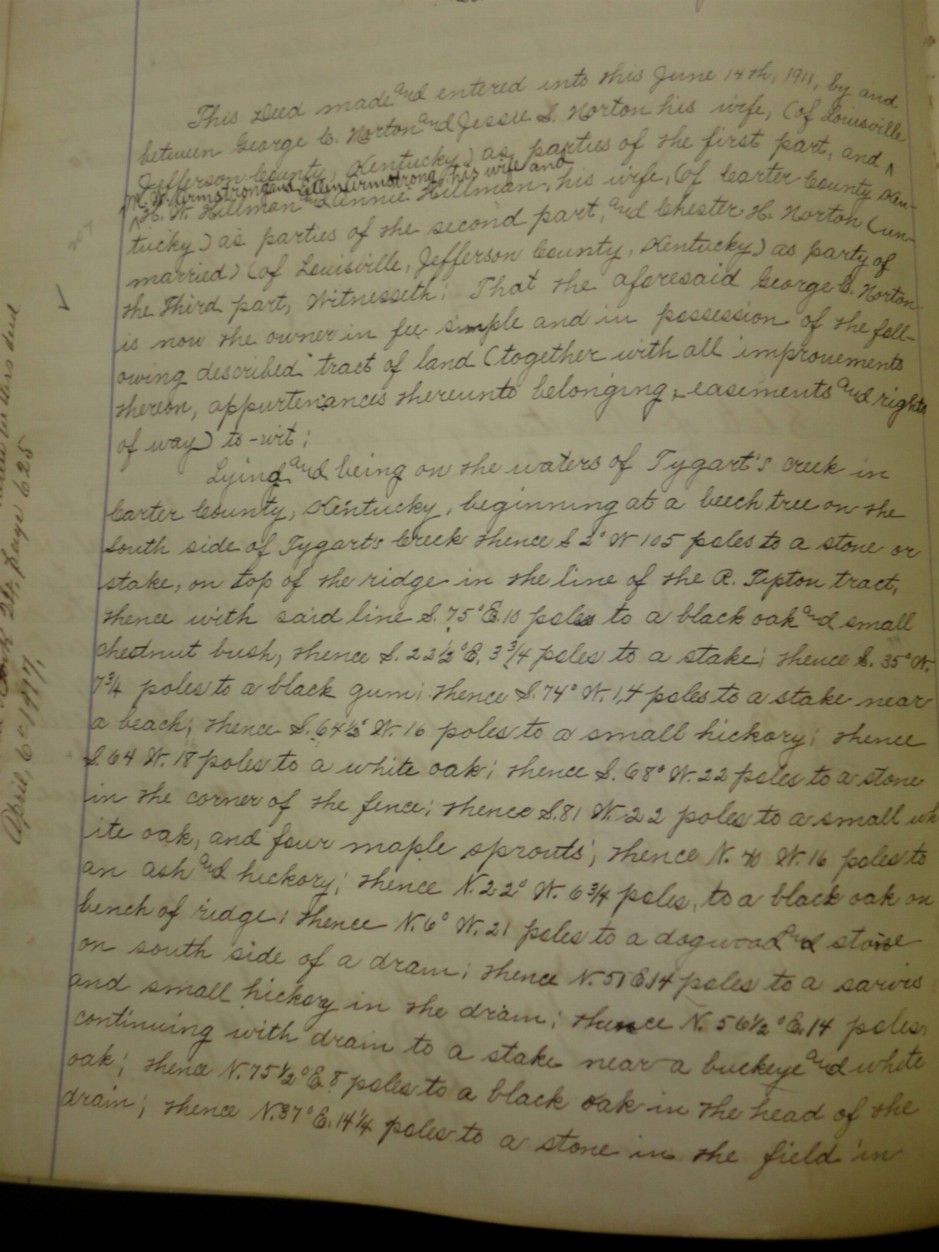 This Deed made and entered into this June 14th, 1911, by and
between George C. Norton and Jessie S. Norton his wife, (of Louisville
Jefferson County, Kentucky) as parties of the first part, and ^
M. W. Armstrong and Ellen Armstrong, his wife and
^ H. W. Hillman and Lennie Hillman, his wife, (of Carter County Ken-
tucky) as parties of the second part, and Chester H. Norton (un-
married) (of Louisville, Jefferson County, Kentucky) as party of
the Third part, Witnesseth: That the aforesaid George C. Norton
is now the owner in fee simple and in possession of the foll-
owing described tract of land (together with all improvements
thereon, appurtenances thereunto belonging, easements and rights
of way) to-wit;
Lying and being on the waters of Tygart's creek in
Carter County, Kentucky, beginning at a beech tree on the
South side of Tygarts Creek thence S 2° W 105 poles to a stone or
stake, on top of the ridge in the line of the R. Tipton tract,
thence with said line S. 75° E. 10 poles to a black oak and small
chestnut bush, thence S. 22½° E. 3 3/4 poles to a stake; thence S. 35° W.
7 3/4 poles to a black gum; thence S. 74° W. 14 poles to a stake near
a beach; thence S. 64½° W. 16 poles to a small hickory; thence
S. 64 W. 18 poles to a white oak; thence S. 68° W. 22 poles to a stone
in the corner of the fence; thence S. 81 W. 22 poles to a small wh
ite oak, and four maple sprouts; thence N. 40 W. 16 poles to
an ash and hickory; thence N. 22° W. 6 3/4 poles, to a black oak on
bench of ridge; thence N. 6° W. 21 poles to a dogwood and stone
on south side of a drain; thence N. 51 E. 14 poles to a sarvis
and small hickory in the drain; thence N. 56½° E. 14 poles
continuing with drain to a stake near a buckeye and white
oak; thence N. 75½° E 8 poles to a black oak in the head of the
drain; thence N. 87° E. 14 1/4 poles to a stone in the field in
24, page 625
April, 6" 1917,